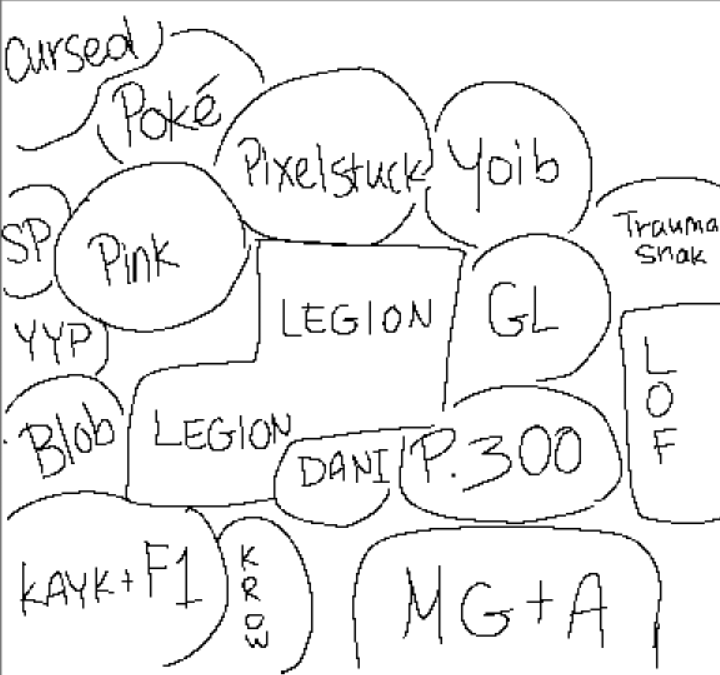 cursed
Poké
Pixelstuck
Yoib
SP
Pink
Trauma
snak
LEGION
GL
YYP
LOF
Blob
LEGION
DANI
P.300
KAYK+F1
KROW
MG+A